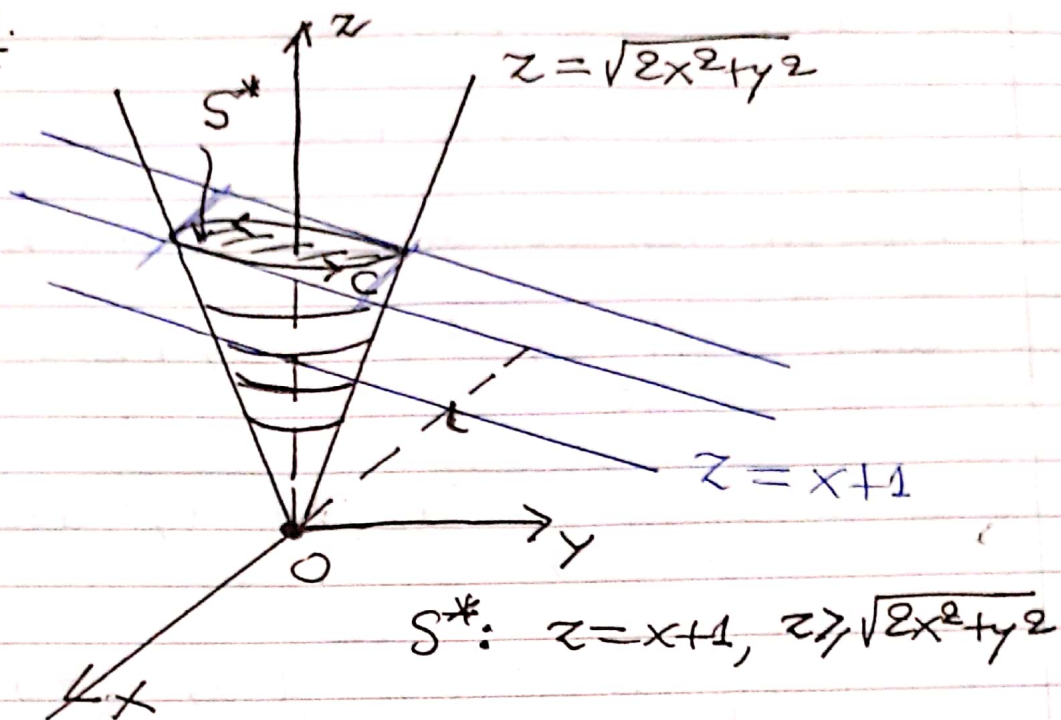 z
z = √2x²+y²
S*
C
t
z = x+1
y
O
S*: z = x+1, z ≥ √2x²+y²
x